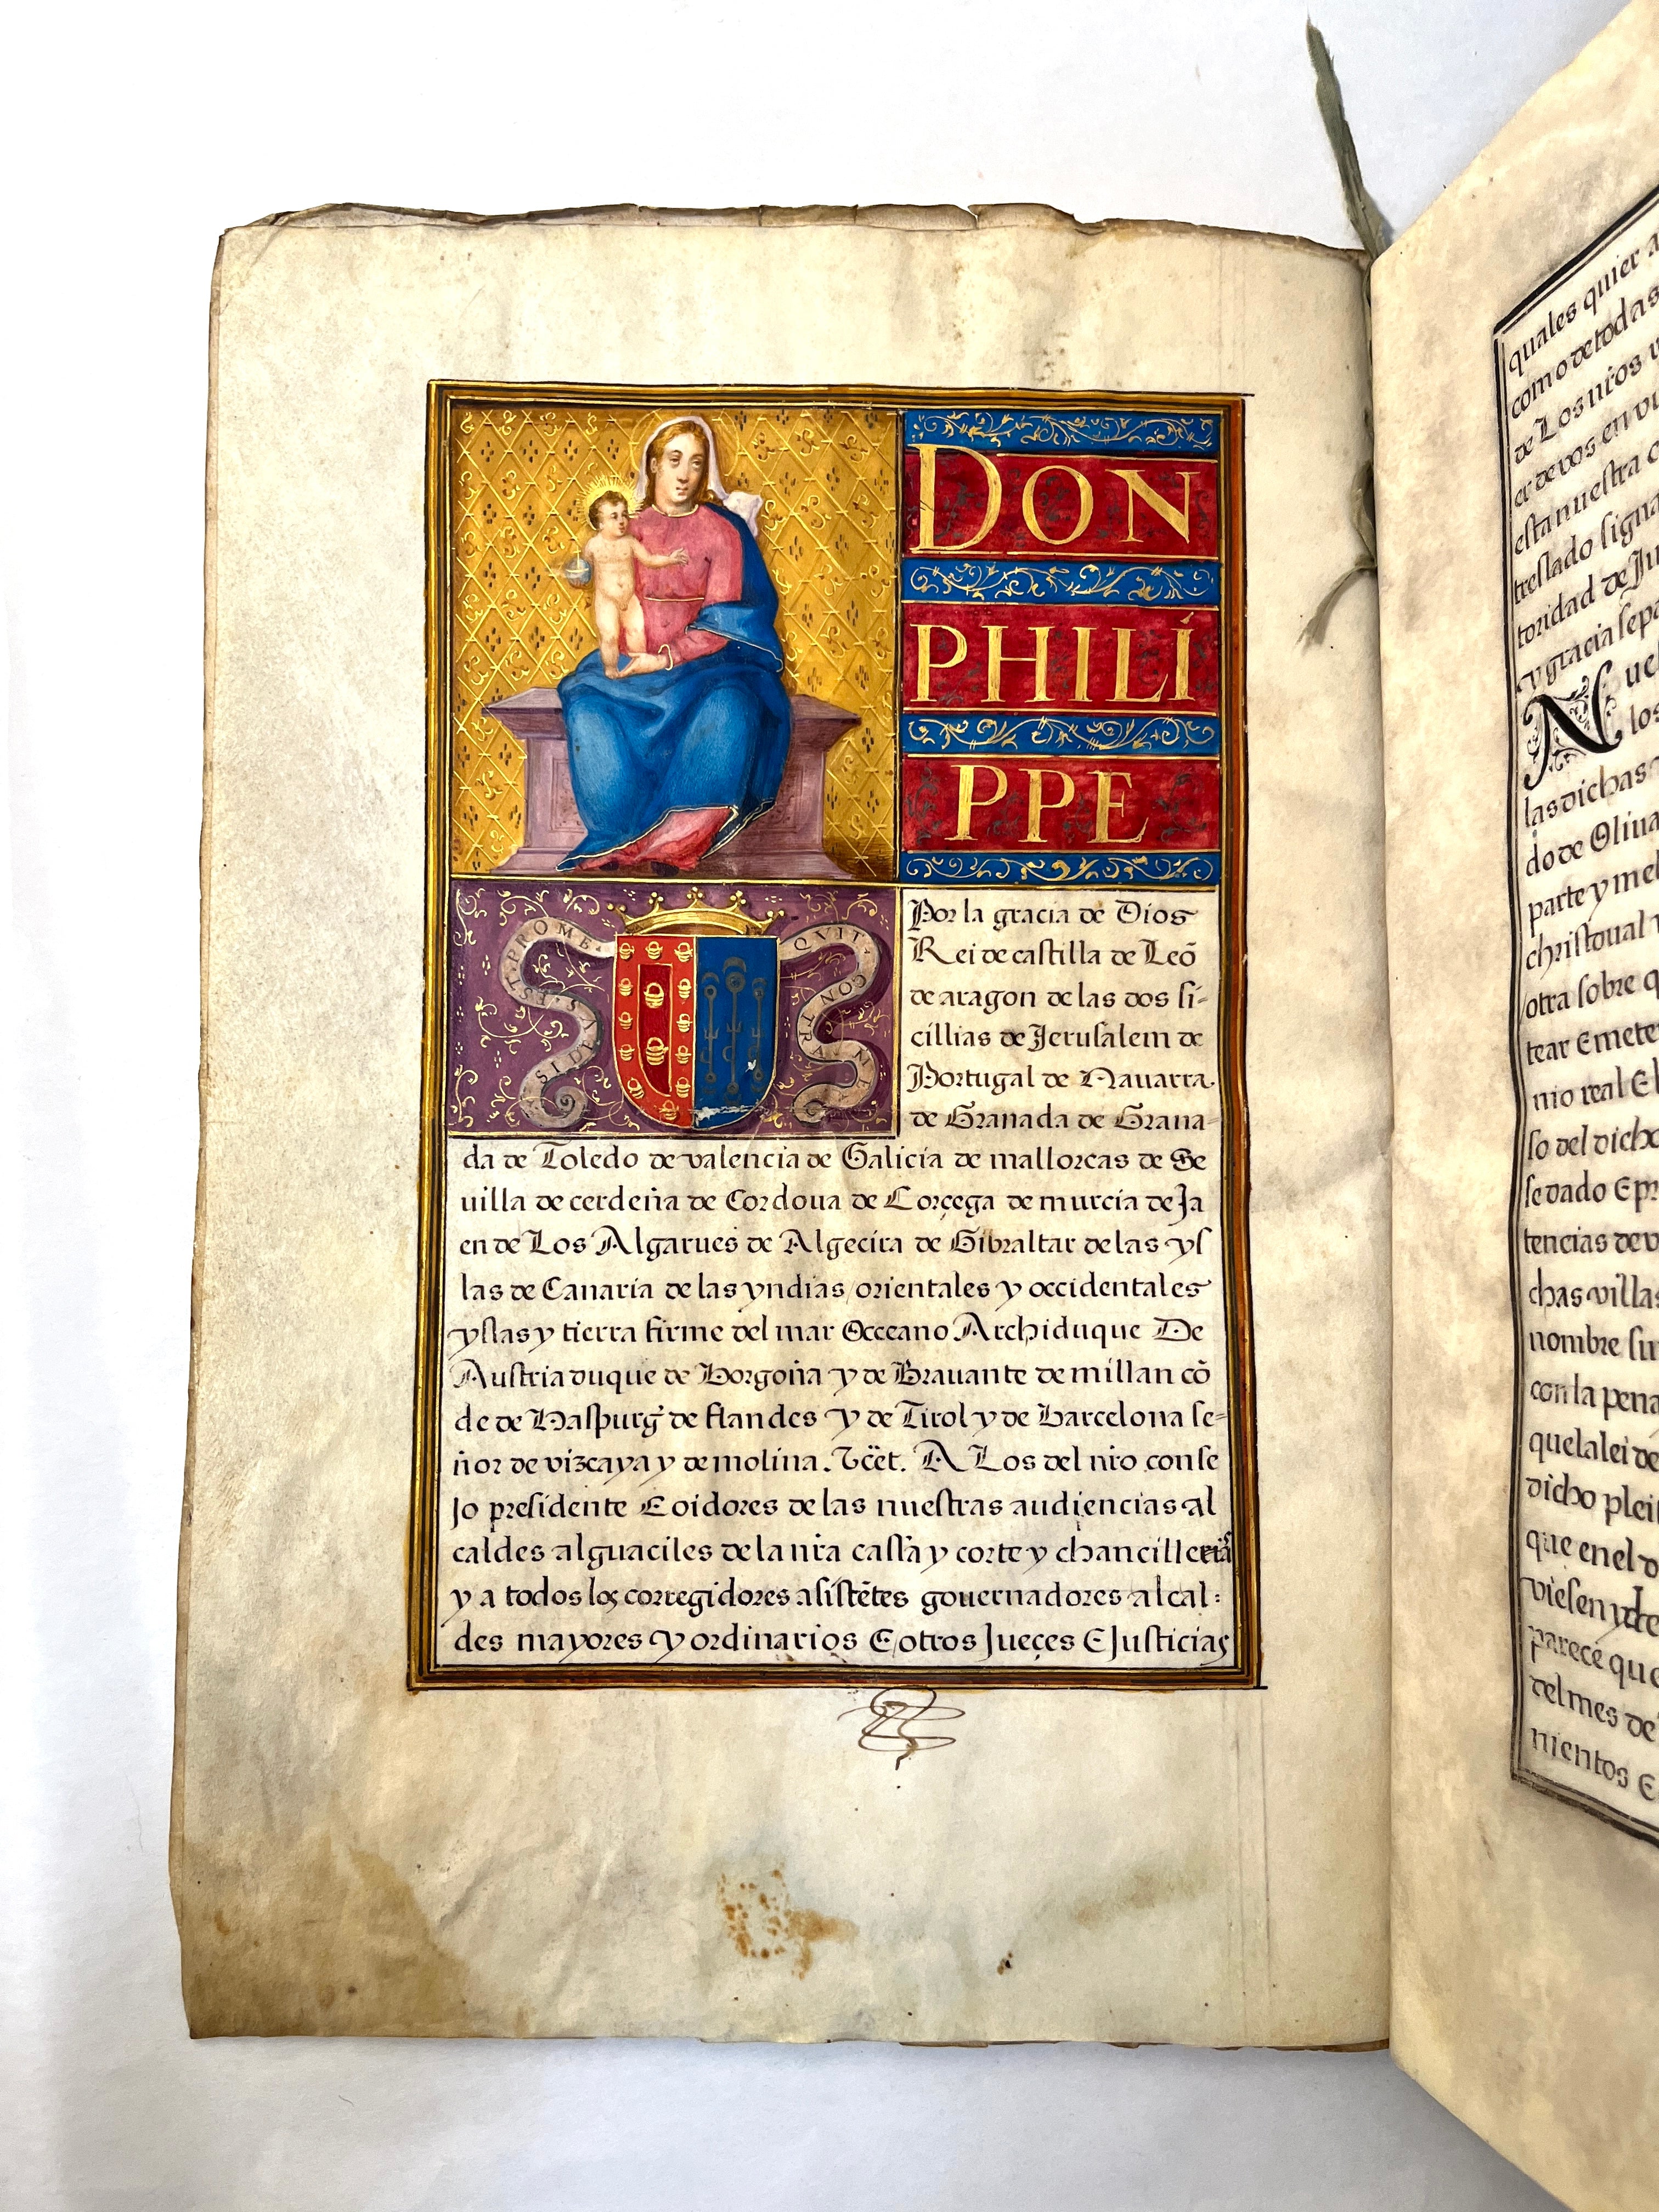 DON
PHILI
PPE
SI DEVS EST PRO ME
QVIT CONTRA ME
Por la gracia de Dios
Rei de castilla de Leõ
de aragon de las dos si-
cillias de Jerusalem de
Portugal de Nauarra.
de Granada de Grana-
da de Toledo de valencia de Galicia de mallorcas de Se
uilla de cerdeña de Cordoua de Corçega de murcia de Ja
en de Los Algarues de Algecira de Gibraltar de las ys
las de Canaria de las yndias orientales y occidentales
yslas y tierra firme del mar Occeano Archiduque De
Austria duque de Borgoña y de Brauante de millan cõ
de de Haspurg de flandes y de Tirol y de barcelona se-
ñor de vizcaya y de molina. &cet. A Los del nr̃o conse
jo presidente E oidores de las nuestras audiencias al
caldes alguaciles de la nr̃a cassa y corte y chancillerias
y a todos los corregidores asistẽtes gouernadores alcal:
des mayores y ordinarios E otros Jueçes E Justicias
quales quier a
como de todas
de Los nr̃os
er de vos en
esta nuestra
treslado signa
toridad de Ju
y gracia sepa
Nue
los
las dichas
do de Oliua
parte y me
christoual
otra sobre q
tear E mete
nio real El
so del dicho
se dado E pr
tencias de v
chas villas
nombre su
con la pena
que la lei de
dicho plei
que en el d
viesen y de
parece que
del mes de
nientos E